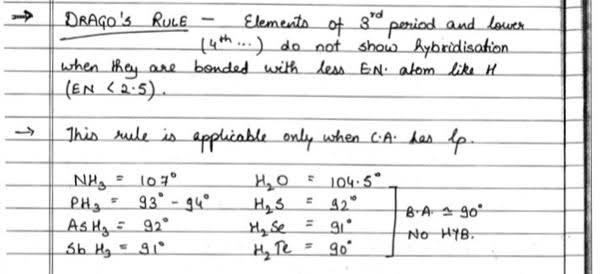 ⇒ DRAGO'S RULE – Elements of 3rd period and lower
(4th ...) do not show hybridisation
when they are bonded with less EN. atom like H
(EN < 2.5).
→ This rule is applicable only when C.A. has lp.
NH3 = 107° H2O = 104.5°
PH3 = 93° - 94° H2S = 92°
AsH3 = 92° H2Se = 91°
SbH3 = 91° H2Te = 90°
B.A. ≃ 90°
NO HYB.